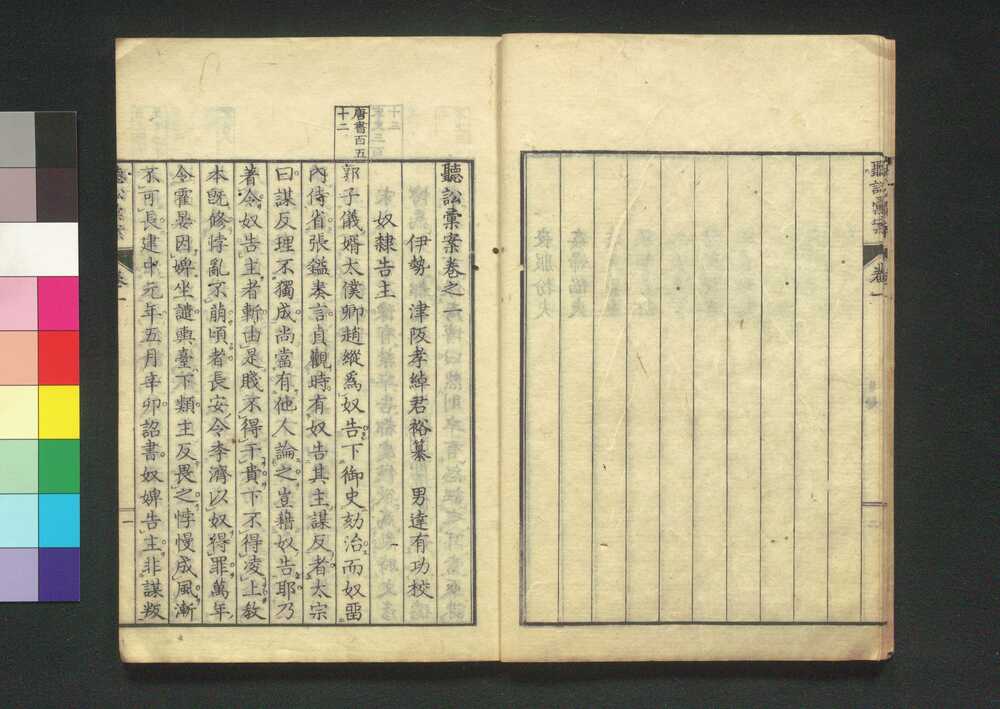 聽訟彙案
卷一
聽訟彙案卷之一
伊勢 津阪孝綽君裕纂 男達有功校
奴隸告主
唐書百五
十二
郭子儀婿太僕卿趙縱爲奴告下御史劾治而奴畱
內侍省張鎰奏言貞觀時有奴告其主謀反者太宗
曰謀反理不獨成尚當有他人論之豈藉奴告耶乃
著令奴告主者斬由是賤不得干貴下不得凌上敎
本旣修悖亂不萠頃者長安令李濟以奴得罪萬年
令霍晏因婢坐譴輿臺下類主反畏之悖慢成風漸
不可長建中元年五月辛卯詔書奴婢告主非謀叛
聽訟彙案
卷一
一